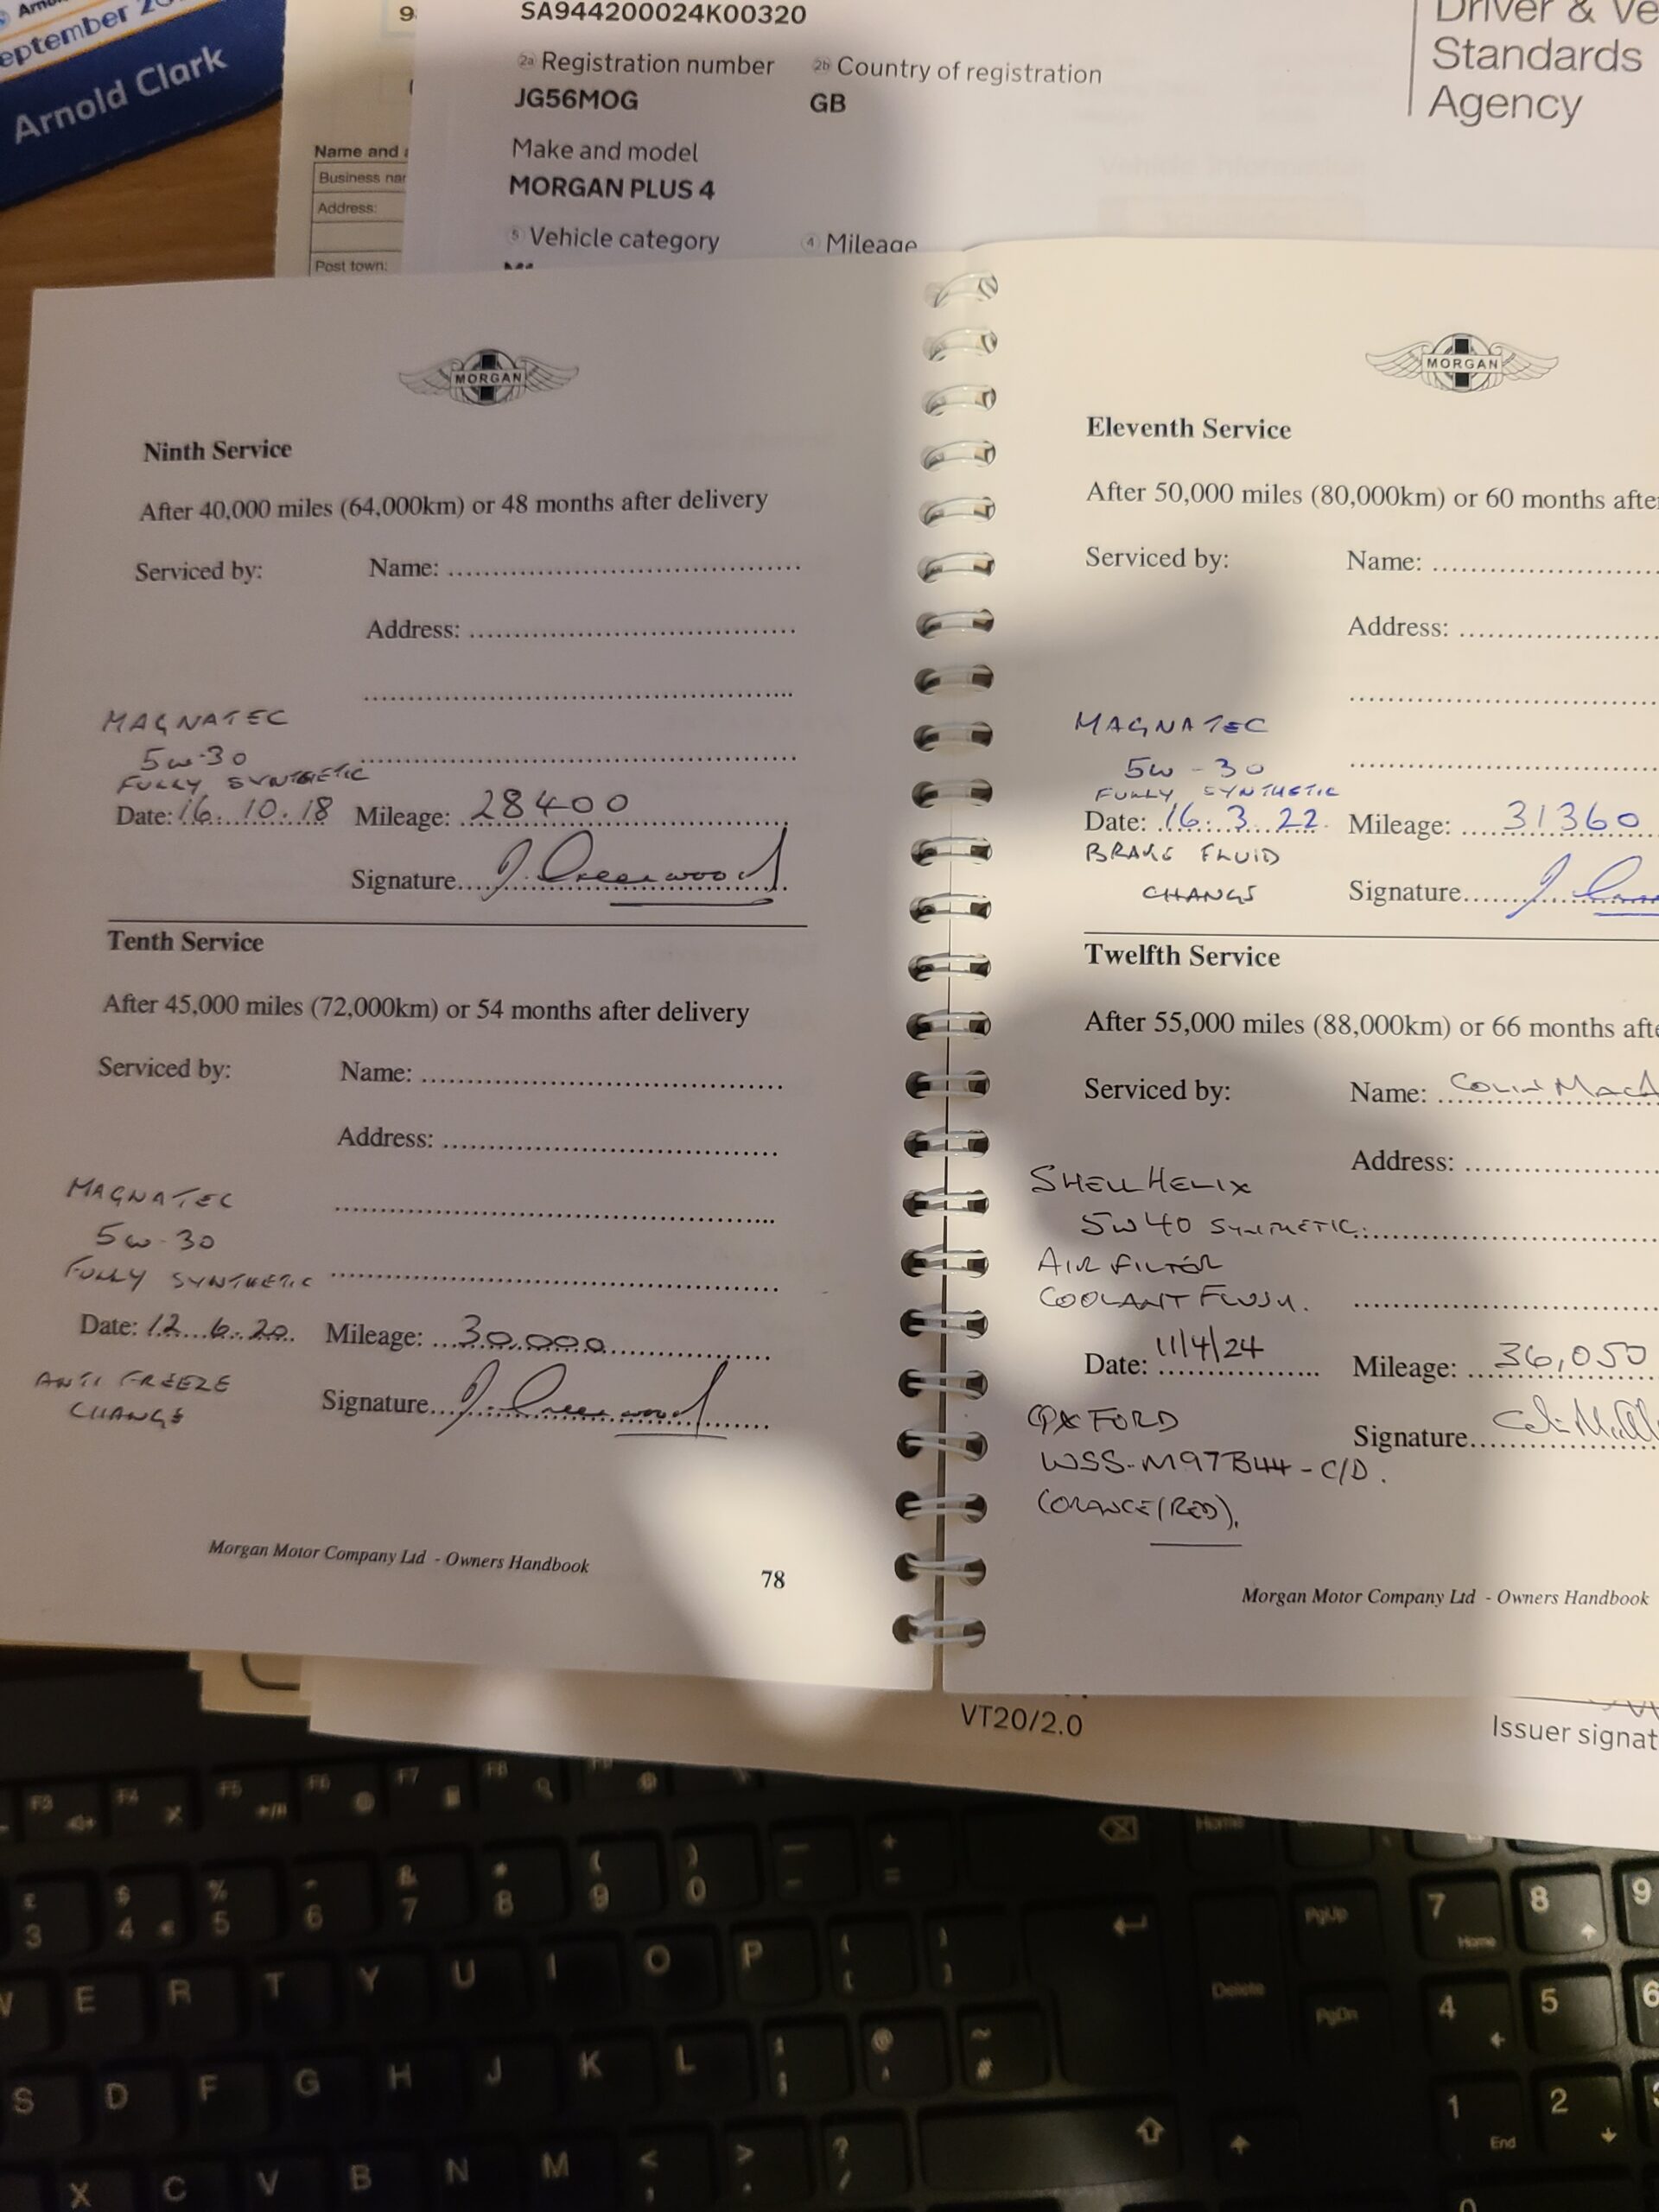 Arnold Clark
SA944200024K00320
2a Registration number
2b Country of registration
JG56MOG
GB
Make and model
MORGAN PLUS 4
5 Vehicle category
4 Mileage
Driver & Ve
Standards
Agency
Name and
Business nar
Address:
Post town:
MORGAN
Ninth Service
After 40,000 miles (64,000km) or 48 months after delivery
Serviced by:
Name:
Address:
MAGNATEC
5w-30
FULLY SYNTHETIC
Date: 16.10.18 Mileage: 28400
Signature J. Greenwood
Tenth Service
After 45,000 miles (72,000km) or 54 months after delivery
Serviced by:
Name:
Address:
MAGNATEC
5w-30
FULLY SYNTHETIC
Date: 12.6.20. Mileage: 30,000
ANTI FREEZE
CHANGE
Signature J. Greenwood
Morgan Motor Company Ltd - Owners Handbook
78
MORGAN
Eleventh Service
After 50,000 miles (80,000km) or 60 months after
Serviced by:
Name:
Address:
MAGNATEC
5w-30
FULLY SYNTHETIC
Date: 16.3.22. Mileage: 31360
BRAKE FLUID
CHANGE
Signature
Twelfth Service
After 55,000 miles (88,000km) or 66 months afte
Serviced by:
Name: Colin MacA
Address:
SHELL HELIX
5w40 SYNTHETIC.
AIR FILTER
COOLANT FLUSH.
Date: 11/4/24 Mileage: 36,050
Signature
FORD
WSS-M97B44-C/D.
(ORANGE/RED).
Morgan Motor Company Ltd - Owners Handbook
VT20/2.0
Issuer signat
F3 F4 F5 F6 F7 F8
£ $ % & * ( ) + Home
3 4 € 5 6 7 8 9 0 - =
PgUp 7 Home 8 9
E R T Y U I O P
Delete PgDn 4 5 6
S D F G H J K L ; @ ' ~ #
1 End 2 3
X C V B N M < , > . ? /
0